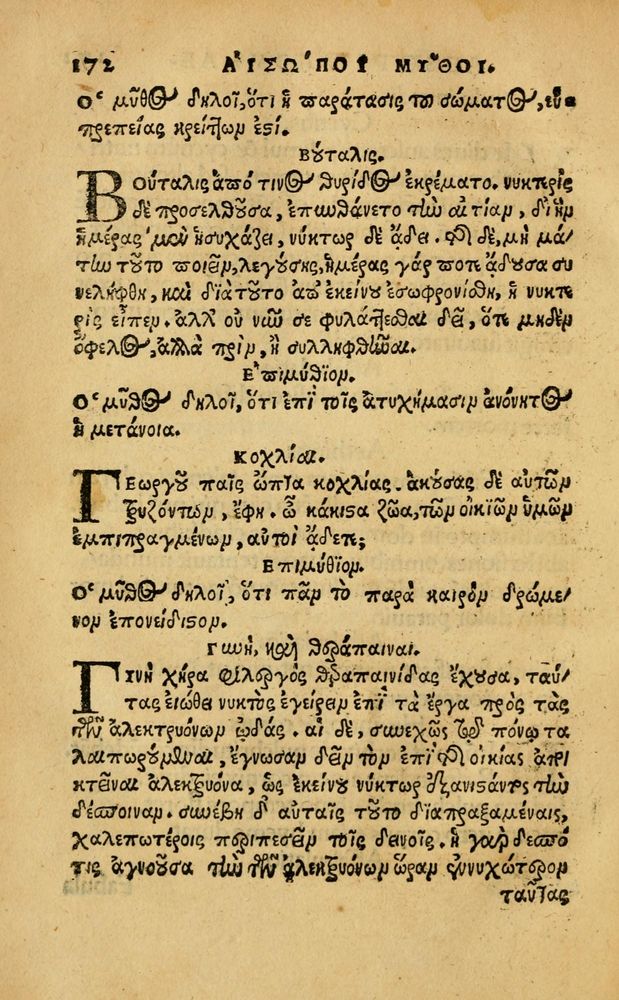 172 ΑΙΣΩΠΟΥ ΜΥΘΟΙ.
Ὁ μῦθος δηλοῖ, ὅτι ἡ παράτασις τοῦ σώματος, εὐ-
πρεπείας κρείττων ἐστί.
Βούταλις.
ΒΟύταλις ἀπό τινος θυρίδος ἐκρέματο. νυκτερὶς
δὲ προσελθοῦσα, ἐπυνθάνετο τὴν αἰτίαν, δι' ἣν
ἡμέρας μὲν ἡσυχάζει, νύκτωρ δὲ ᾄδει. τῆς δὲ, μὴ μά-
την τοῦτο ποιεῖν, λεγούσης, ἡμέρας γάρ ποτε ᾄδουσα συ
νελήφθη, καὶ διὰ τοῦτο ἀπ' ἐκείνου ἐσωφρονίσθη, ἡ νυκτε
ρὶς εἶπεν. ἀλλ' οὐ νῦν σε φυλάττεσθαι δεῖ, ὅτε μηδὲν
ὄφελος, ἀλλὰ πρὶν, ἢ συλληφθῆναι.
Ἐπιμύθιον.
Ὁ μῦθος δηλοῖ, ὅτι ἐπὶ τοῖς ἀτυχήμασιν ἀνόνητος
ἡ μετάνοια.
Κοχλίαι.
ΓΕωργοῦ παῖς ὤπτα κοχλίας. ἀκούσας δὲ αὐτῶν
τρυζόντων, ἔφη. ὦ κάκιστα ζῶα, τῶν οἰκιῶν ὑμῶν
ἐμπιπραμένων, αὐτοὶ ᾄδετε;
Ἐπιμύθιον.
Ὁ μῦθος δηλοῖ, ὅτι πᾶν τὸ παρὰ καιρὸν δρώμε-
νον ἐπονείδιστον.
Γυνὴ, καὶ θεράπαιναι.
ΓΥνὴ χήρα φιλεργὸς θεραπαινίδας ἔχουσα, ταύ-
τας εἰώθει νυκτὸς ἐγείρειν ἐπὶ τὰ ἔργα πρὸς τὰς
τῶν ἀλεκτρυόνων ᾠδάς. αἱ δὲ, συνεχῶς τῷ πόνῳ τα
λαιπωρούμεναι, ἔγνωσαν δεῖν τὸν ἐπὶ τῆς οἰκίας ἀπο
κτεῖναι ἀλεκτρυόνα, ὡς ἐκείνου νύκτωρ ἐξανιστάντος τὴν
δέσποιναν. συνέβη δ' αὐταῖς τοῦτο διαπραξαμέναις,
χαλεπωτέροις περιπεσεῖν τοῖς δεινοῖς. ἡ γὰρ δεσπό
τις ἀγνοοῦσα τὴν τῶν ἀλεκτρυόνων ὥραν ἐννυχώτερον
ταύτας